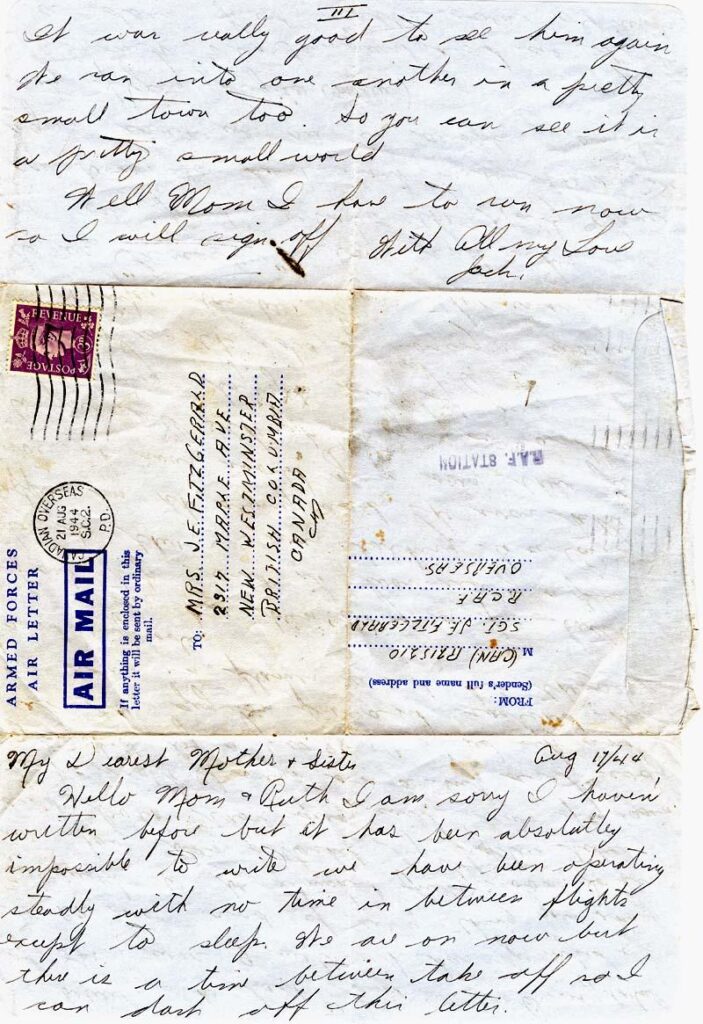 III
It was really good to see him again
We ran into one another in a pretty
small town too. So you can see it is
a pretty small world
Well Mom I have to run now
so I will sign off
With All my Love
Jack.
REVENUE
POSTAGE
CANADIAN OVERSEAS
21 AUG
1944
S.C.2.
P.D.
ARMED FORCES
AIR LETTER
AIR MAIL
If anything is enclosed in this
letter it will be sent by ordinary
mail.
TO:
MRS J.E. FITZGERALD
2317 MAPLE AVE
NEW WESTMINSTER
BRITISH COLUMBIA
CANADA
R.A.F. STATION
FROM:
(Sender's full name and address)
(CAN) R215210
SGT. J.E. FITZGERALD
R.C.A.F.
OVERSEAS
My Dearest Mother + Sister
Aug 17/44
Hello Mom & Ruth I am sorry I haven'
written before but it has been absolutley
impossible to write we have been operating
steadly with no time in between flights
except to sleep. We are on now but
there is a time between take off so I
can dash off this letter.